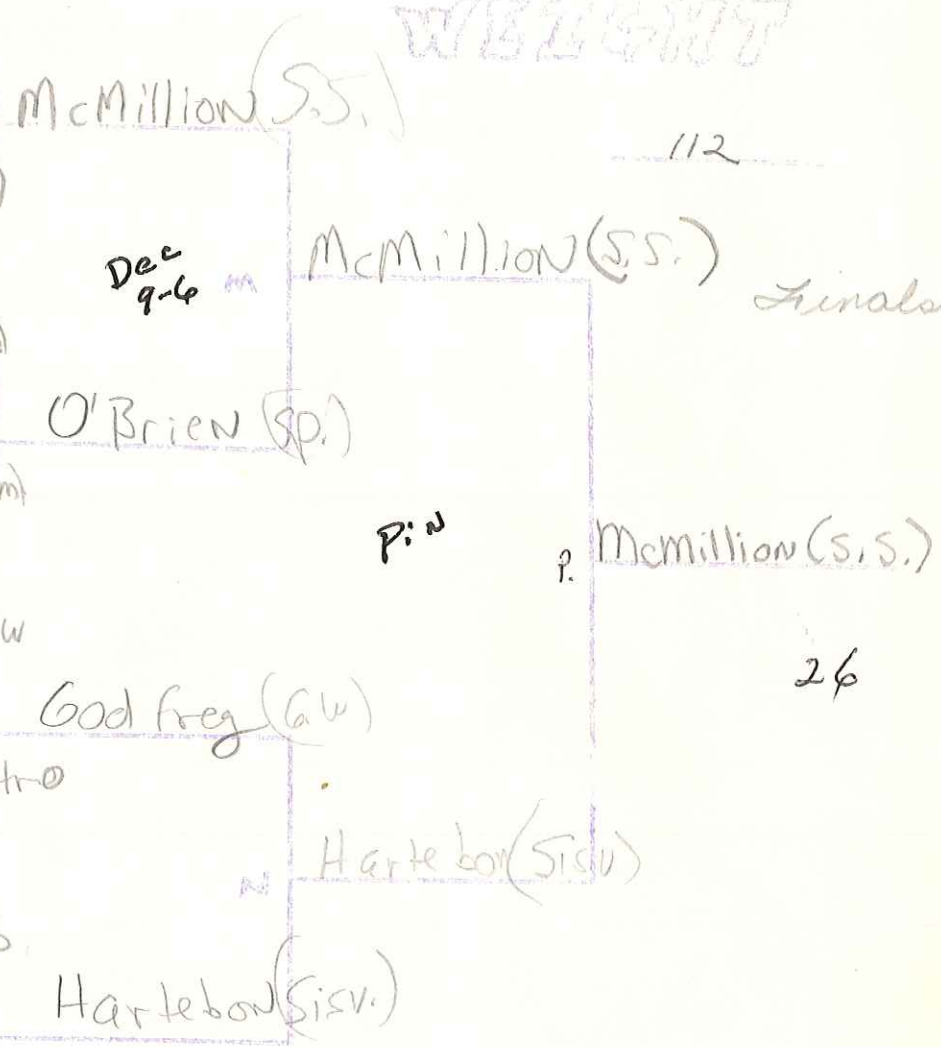 WEIGHT
McMillion (S.S.)
112
McMillion (S.S.)
Dec
9-6
M
Finals
O'Brien (Sp.)
m)
Pin
P.
McMillion (S.S.)
W
26
Godfrey (G.W)
tro
Hartebon (Sisv)
N
Hartebon (Sisv.)